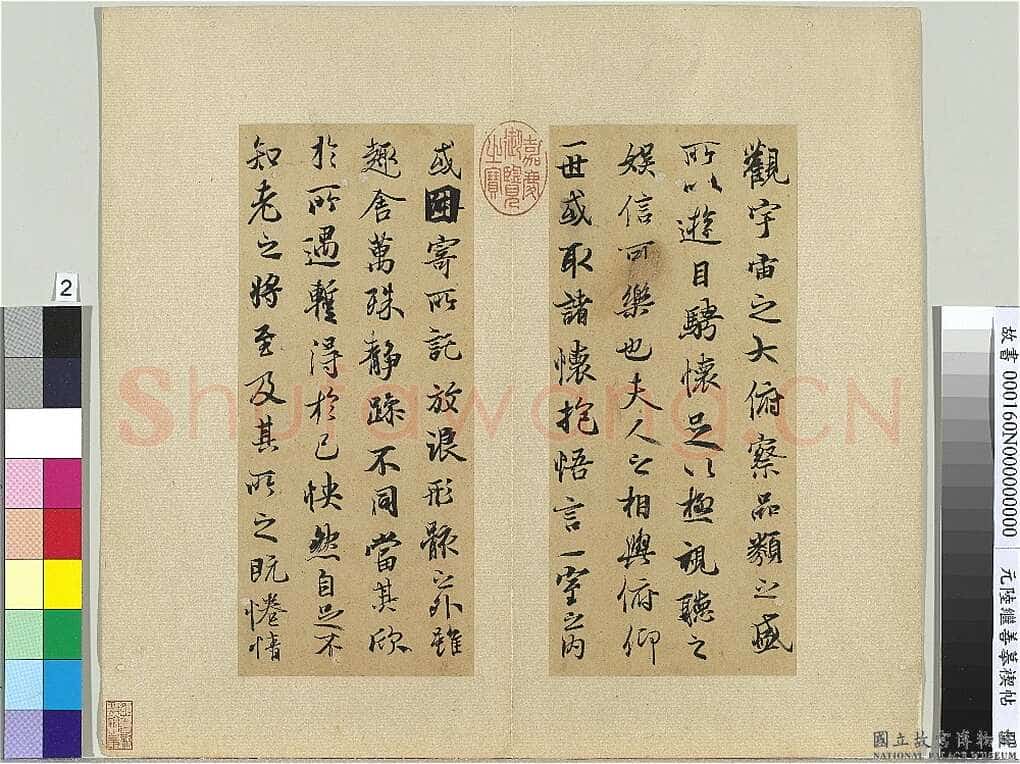 觀宇宙之大俯察品類之盛
所以遊目騁懷足以極視聽之
娛信可樂也夫人之相與俯仰
一世或取諸懷抱悟言一室之內
或因寄所託放浪形骸之外雖
趣舍萬殊静躁不同當其欣
於所遇暫得於己怏然自足不
知老之將至及其所之既惓情
嘉慶御覽之寶
2
故書 000160N000000000
元陸繼善摹禊帖
Shufawang.CN
國立故宮博物院
NATIONAL PALACE MUSEUM